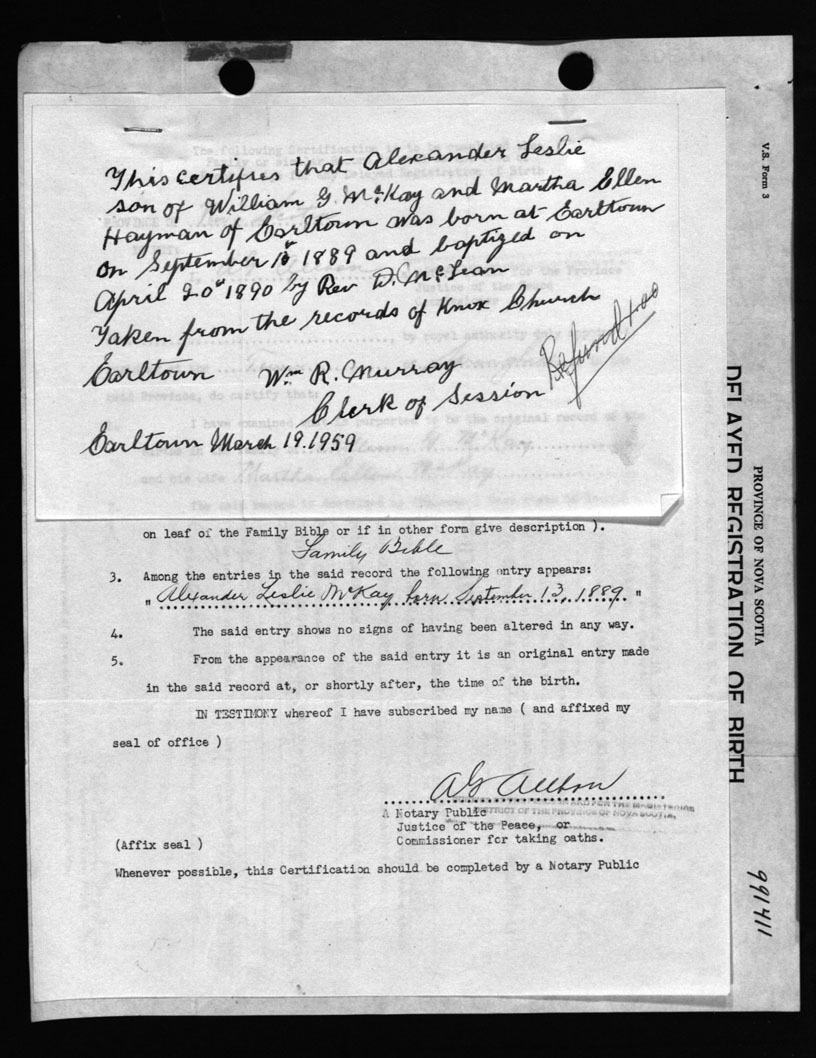 This certifies that Alexander Leslie
son of William G. McKay and Martha Ellen
Hayman of Earltown was born at Earltown
on September 1889 and baptized on
April 20th 1890 by Rev D. McLean
Taken from the records of Knox Church
Earltown Wm R. Murray
Clerk of Session
Earltown March 19. 1959
on leaf of the Family Bible or if in other form give description ).
Family Bible
3. Among the entries in the said record the following entry appears:
" Alexander Leslie McKay born September 13, 1889. "
4. The said entry shows no signs of having been altered in any way.
5. From the appearance of the said entry it is an original entry made
in the said record at, or shortly after, the time of the birth.
IN TESTIMONY whereof I have subscribed my name ( and affixed my
seal of office )
A Notary Public
DISTRICT OF THE PROVINCE OF NOVA SCOTIA,
Justice of the Peace, or
(Affix seal )
Commissioner for taking oaths.
Whenever possible, this Certification should be completed by a Notary Public
V.S. Form 3
PROVINCE OF NOVA SCOTIA
DELAYED REGISTRATION OF BIRTH
991411